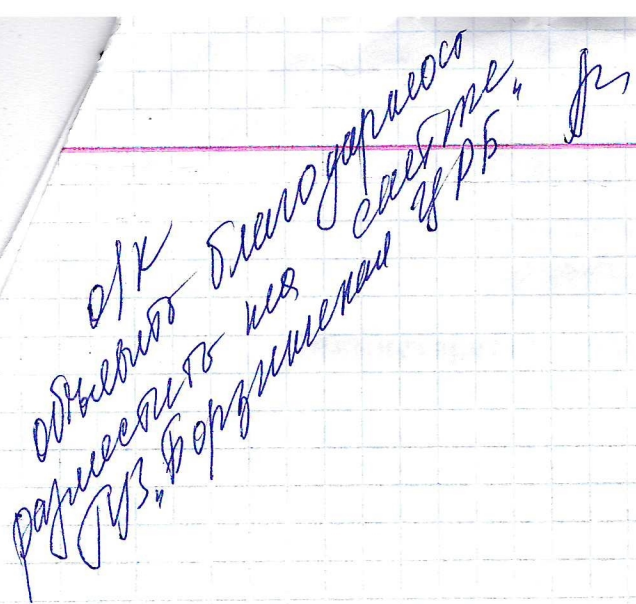 о/к
объявить благодарность
разместить на сайте
ГУЗ „Борзинская ЦРБ"